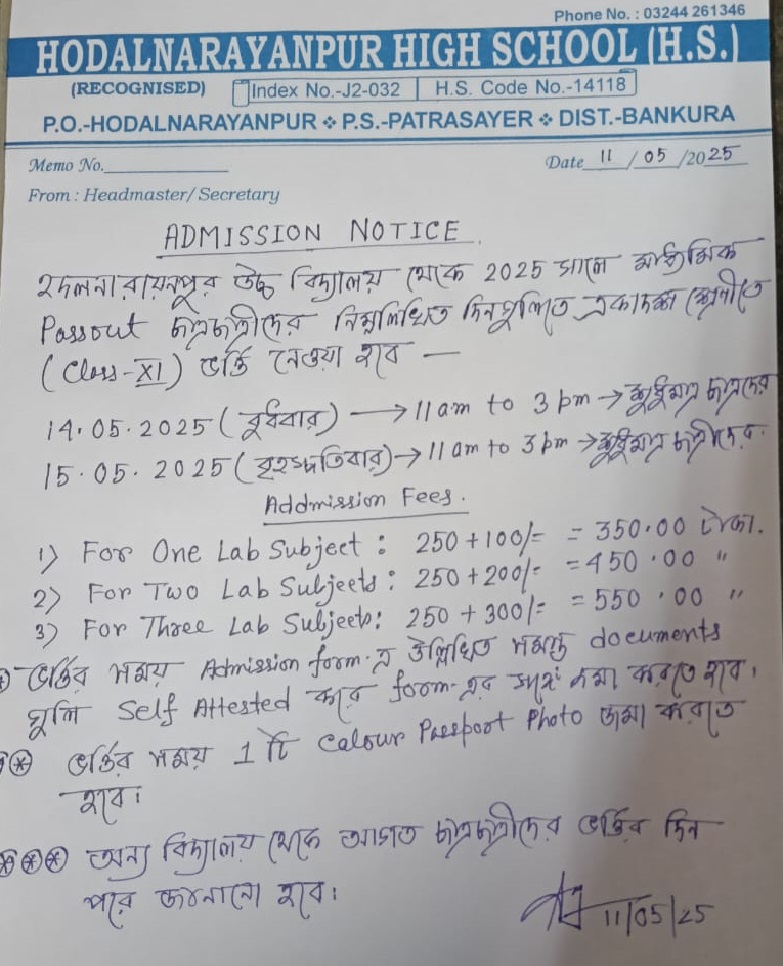 Phone No. : 03244 261346
HODALNARAYANPUR HIGH SCHOOL (H.S.)
(RECOGNISED) Index No.-J2-032 H.S. Code No.-14118
P.O.-HODALNARAYANPUR ❖ P.S.-PATRASAYER ❖ DIST.-BANKURA
Memo No. Date 11/05/2025
From : Headmaster/ Secretary
ADMISSION NOTICE.
হদলনারায়নপুর উচ্চ বিদ্যালয় থেকে 2025 সালে মাধ্যমিক
Passout ছাত্রছাত্রীদের নিম্নলিখিত দিনগুলিতে একাদশ শ্রেণীতে
(Class-XI) ভর্তি নেওয়া হবে —
14.05.2025 (বুধবার) → 11am to 3pm → শুধুমাত্র ছাত্রদের
15.05.2025 (বৃহস্পতিবার) → 11am to 3pm → শুধুমাত্র ছাত্রীদের.
Addmission Fees.
1) For One Lab Subject : 250+100/- = 350.00 টাকা.
2) For Two Lab Subjects : 250+200/- = 450.00 "
3) For Three Lab Subjects: 250 + 300/- = 550.00 "
ভর্তির সময় Admission form-এ উল্লিখিত সমস্ত documents
গুলি Self Attested করে form-এর সঙ্গে জমা করতে হবে।
ভর্তির সময় 1 টি Colour Passport Photo জমা করতে
হবে।
অন্য বিদ্যালয় থেকে আগত ছাত্রছাত্রীদের ভর্তির দিন
পরে জানানো হবে।
11/05/25